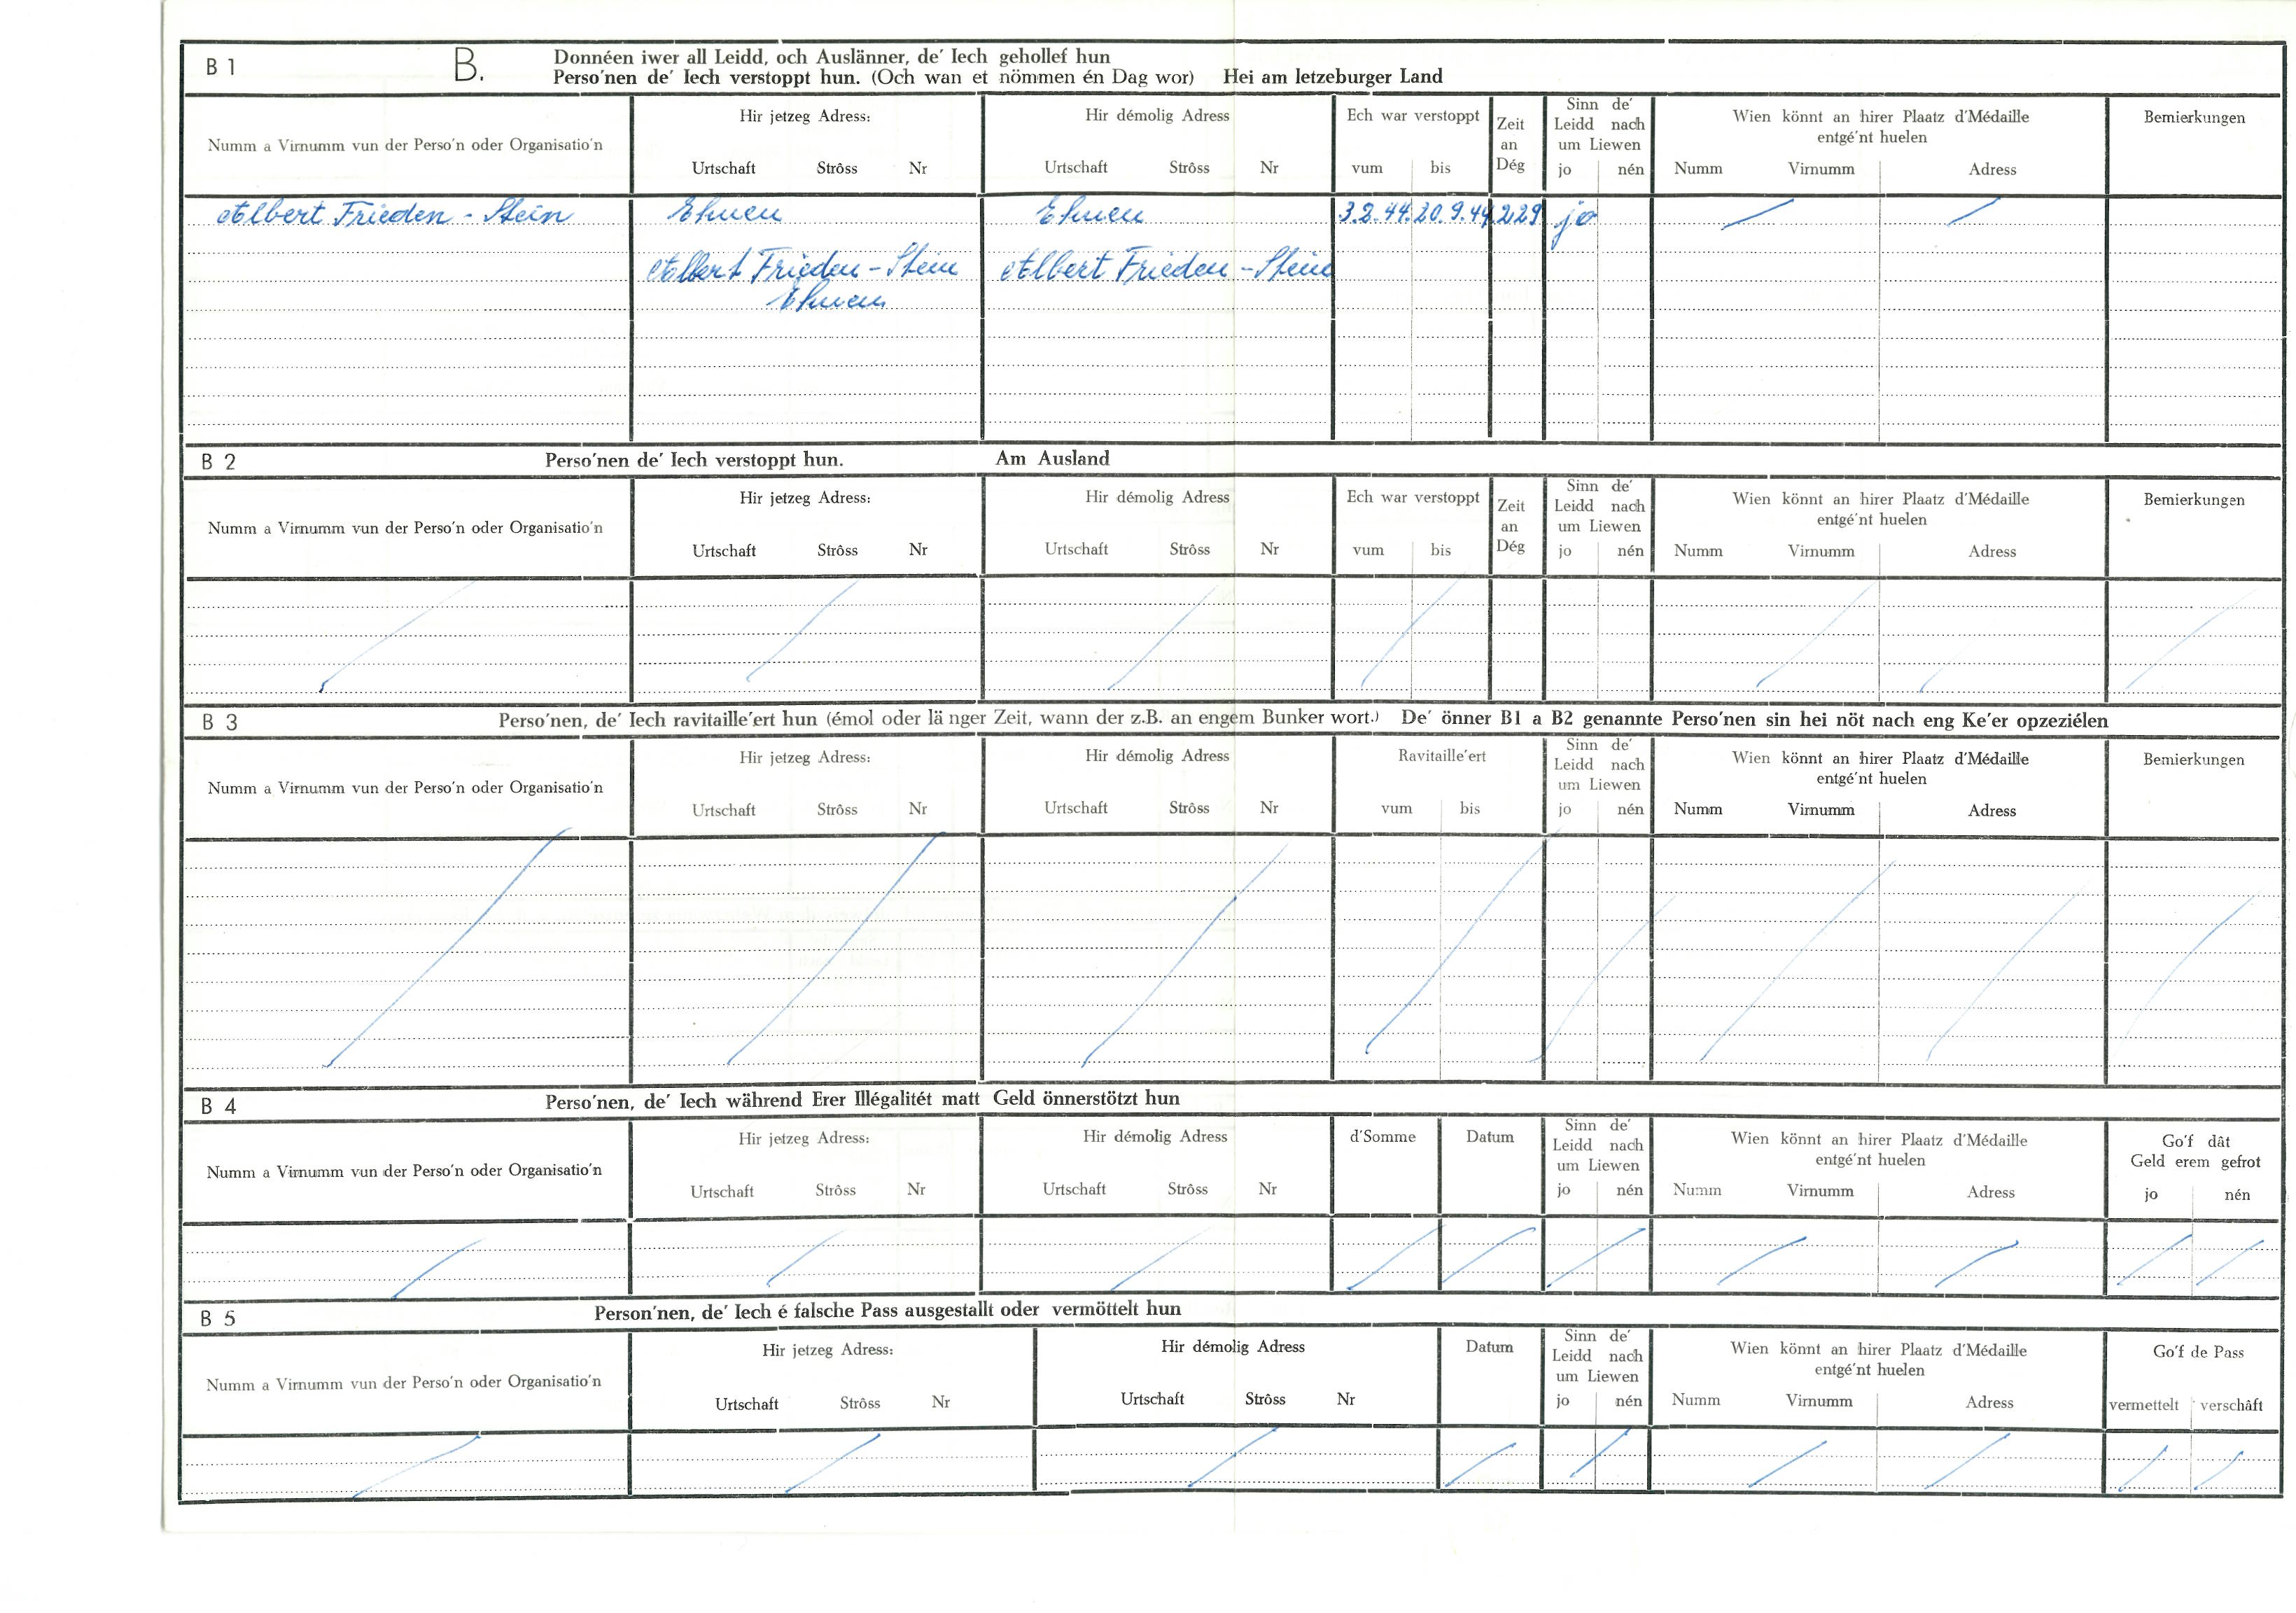 B 1
B.
Donnéen iwer all Leidd, och Auslänner, de' Iech gehollef hun
Perso'nen de' Iech verstoppt hun. (Och wan et nömmen én Dag wor) Hei am letzeburger Land
Numm a Virnumm vun der Perso'n oder Organisatio'n
Hir jetzeg Adress:
Urtschaft Strôss Nr
Hir démolig Adress
Urtschaft Strôss Nr
Ech war verstoppt
vum bis
Zeit
an
Dég
Sinn de'
Leidd nach
um Liewen
jo nén
Wien könnt an hirer Plaatz d'Médaille
entgé'nt huelen
Numm Virnumm Adress
Bemierkungen
Albert Frieden - Stein Ehnen Ehnen 3.2.44. 20.9.44 229 jo
Albert Frieden - Stein Albert Frieden - Stein
Ehnen
B 2
Perso'nen de' Iech verstoppt hun. Am Ausland
Numm a Virnumm vun der Perso'n oder Organisatio'n
Hir jetzeg Adress:
Urtschaft Strôss Nr
Hir démolig Adress
Urtschaft Strôss Nr
Ech war verstoppt
vum bis
Zeit
an
Dég
Sinn de'
Leidd nach
um Liewen
jo nén
Wien könnt an hirer Plaatz d'Médaille
entgé'nt huelen
Numm Virnumm Adress
Bemierkungen
B 3
Perso'nen, de' Iech ravitaille'ert hun (émol oder länger Zeit, wann der z.B. an engem Bunker wort.) De' önner B1 a B2 genannte Perso'nen sin hei nöt nach eng Ke'er opzeziélen
Numm a Virnumm vun der Perso'n oder Organisatio'n
Hir jetzeg Adress:
Urtschaft Strôss Nr
Hir démolig Adress
Urtschaft Strôss Nr
Ravitaille'ert
vum bis
Sinn de'
Leidd nach
um Liewen
jo nén
Wien könnt an hirer Plaatz d'Médaille
entgé'nt huelen
Numm Virnumm Adress
Bemierkungen
B 4
Perso'nen, de' Iech während Erer Illégalitét matt Geld önnerstötzt hun
Numm a Virnumm vun der Perso'n oder Organisatio'n
Hir jetzeg Adress:
Urtschaft Strôss Nr
Hir démolig Adress
Urtschaft Strôss Nr
d'Somme
Datum
Sinn de'
Leidd nach
um Liewen
jo nén
Wien könnt an hirer Plaatz d'Médaille
entgé'nt huelen
Numm Virnumm Adress
Go'f dât
Geld erem gefrot
jo nén
B 5
Person'nen, de' Iech é falsche Pass ausgestallt oder vermöttelt hun
Numm a Virnumm vun der Perso'n oder Organisatio'n
Hir jetzeg Adress:
Urtschaft Strôss Nr
Hir démolig Adress
Urtschaft Strôss Nr
Datum
Sinn de'
Leidd nach
um Liewen
jo nén
Wien könnt an hirer Plaatz d'Médaille
entgé'nt huelen
Numm Virnumm Adress
Go'f de Pass
vermettelt verschâft